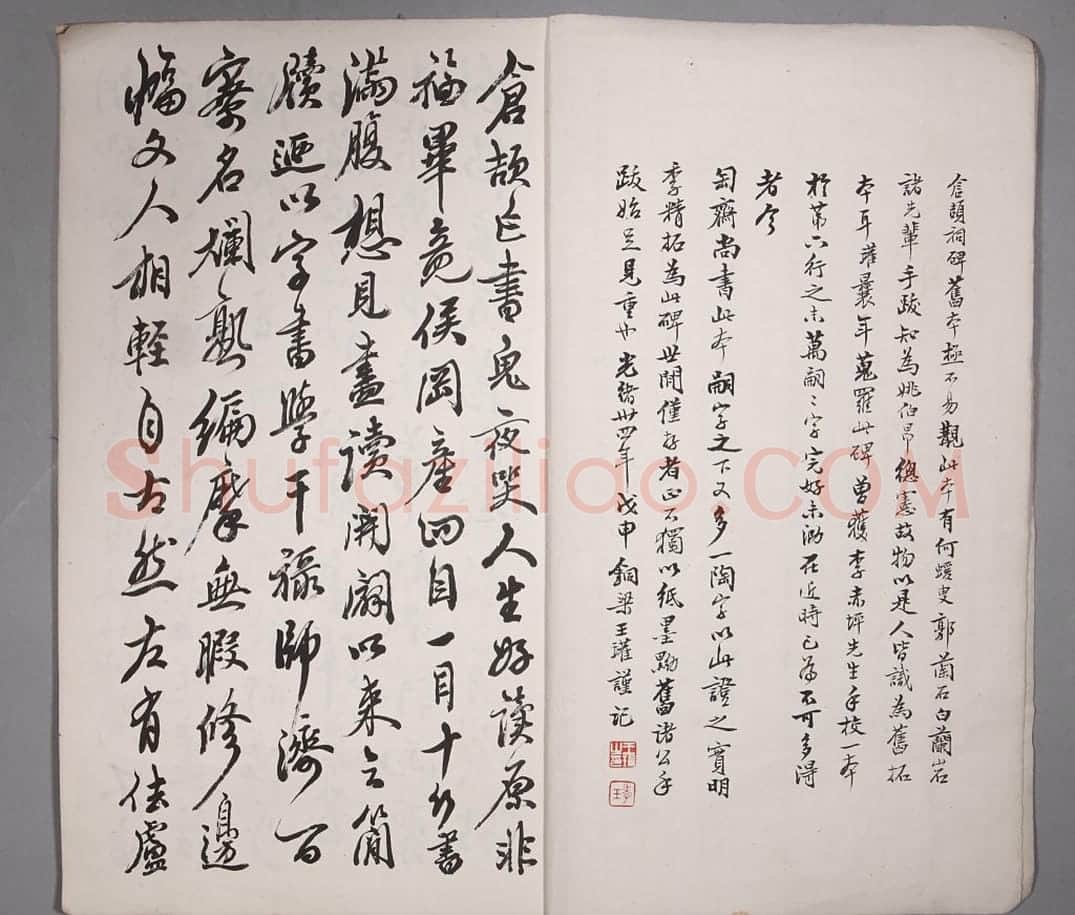 倉頡祠碑舊本極不易觀此本有何蝯叟郭蘭石白蘭岩
諸先輩手跋知為姚伯昂總憲故物以是人皆識為舊拓
本耳瓘曩年蒐羅此碑曾獲李赤坪先生手校一本
於第六行之末萬嗣二字完好未泐在近時已為不可多得
者今
匋齋尚書此本嗣字之下又多一陶字以此證之實明
季精拓為此碑世間僅存者正不獨以紙墨黝舊諸公手
跋始足見重也光緒卅四年戊申銅梁王瓘謹記
倉頡作書鬼夜哭人生好讀原非
福畢竟侯岡產四目一目十行書
滿腹想見盡讀開闢以來之簡
牘迺以字書學干祿師濟百
寮名爛熟編摩無暇修邊
幅文人相輕自古然左有佉盧
Shufaziliao.COM